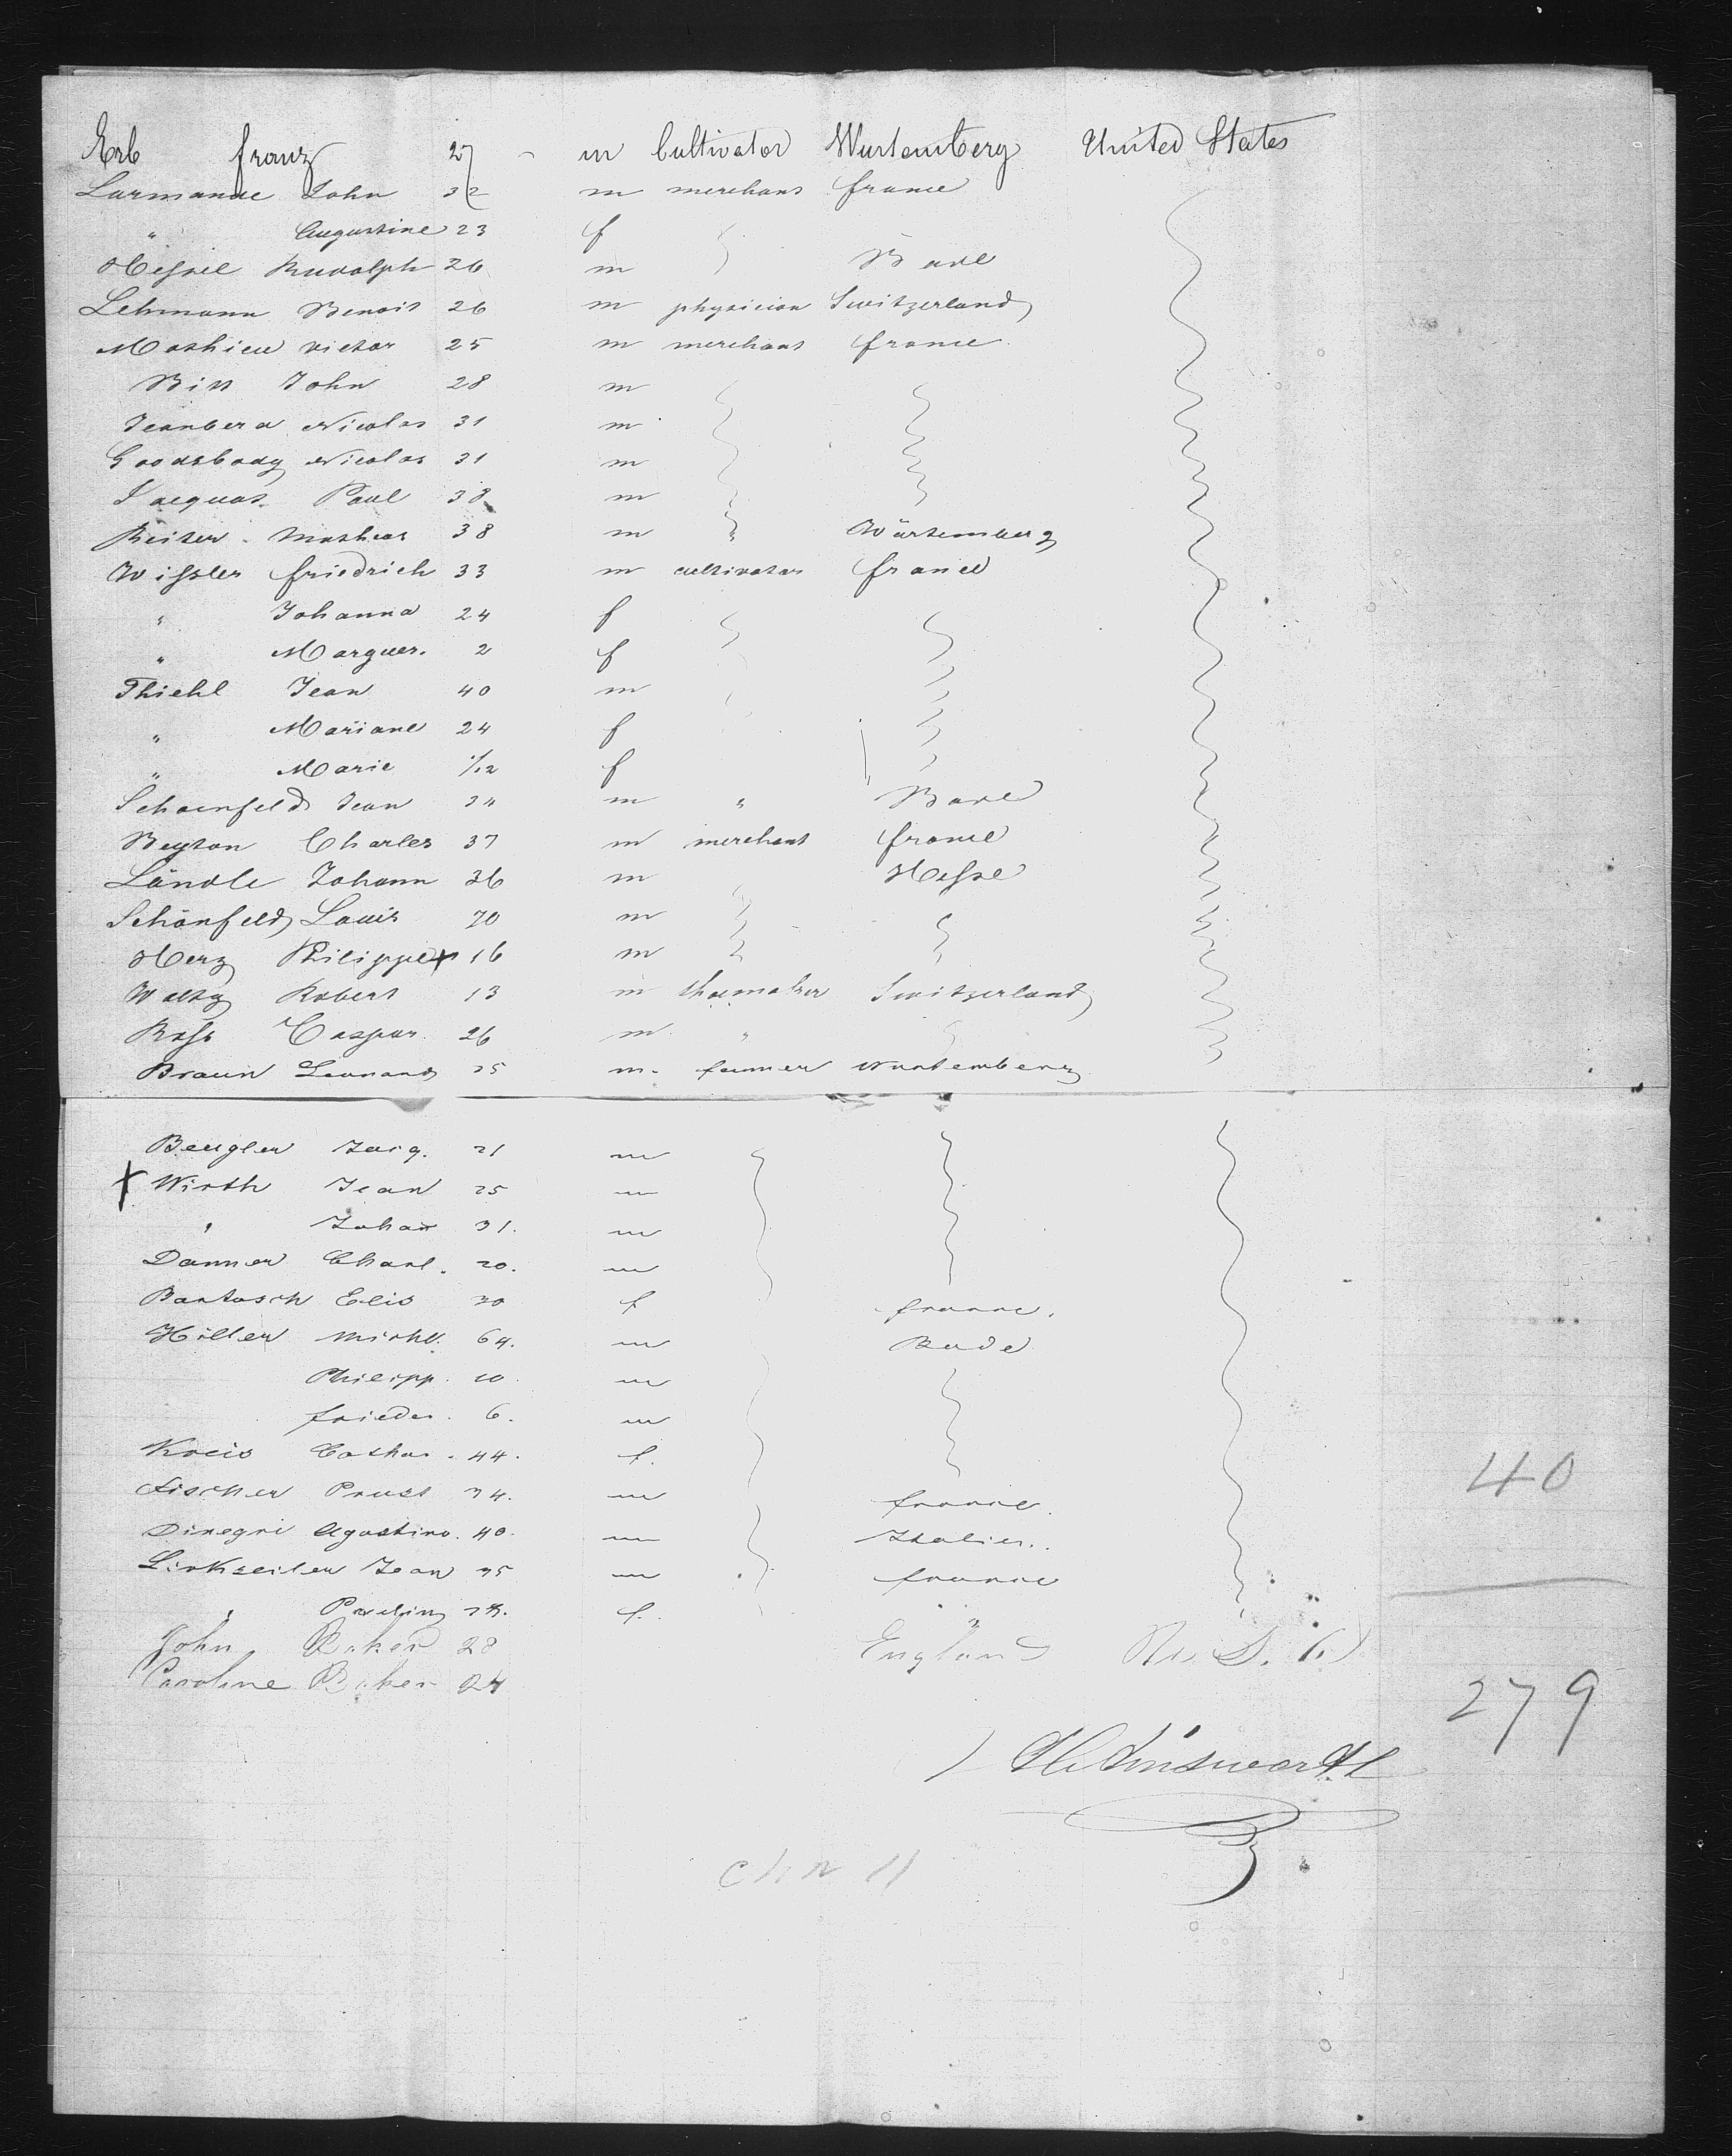 Erb franz 27 - m Cultivator Wurtemberg United States
Larmande John 32 m merchant france
" Augustine 23 f
Hessel Rudolph 26 m Bade
Lehmann Benoit 26 m physician Switzerland
Mathieu victor 25 m merchant france
John 28 m
Nicolas 31 m
Goodsbody Nicolas 31 m
Jacquot Paul 38 m
Reiter Mathias 38 m " Würtemberg
Wissler friedrich 33 m cultivator france
" Johanna 24 f
" Marguer. 2 f
Thiehl Jean 40 m
" Mariane 24 f
" Marie 1/12 f
Schoenfeld Jean m " Bade
Beyton Charles 37 m merchant france
Ländle Johann 36 m Hesse
Schönfeld Louis 70 m
Herz Philippe X 16 m
Robert 13 m shoemaker Switzerland
Caspar 26 m "
Braun Leonard 25 m farmer Wurtemberg
Beugler 21 m
X Wirth Jean 25 m
" Johan 31. m
Danner Charl. 20. m
Bartosch Elis 30 f france.
Hiller Michl. 64. m Bade
Philipp. 10. m
frieder. 6. m
Kreis Cathar. 44. f.
Fischer 34. m france.
Dinegri Agostino. 40. m Italien..
Jean 35 m france
" f. "
John Baker 28 England
Caroline Baker 24
40
279